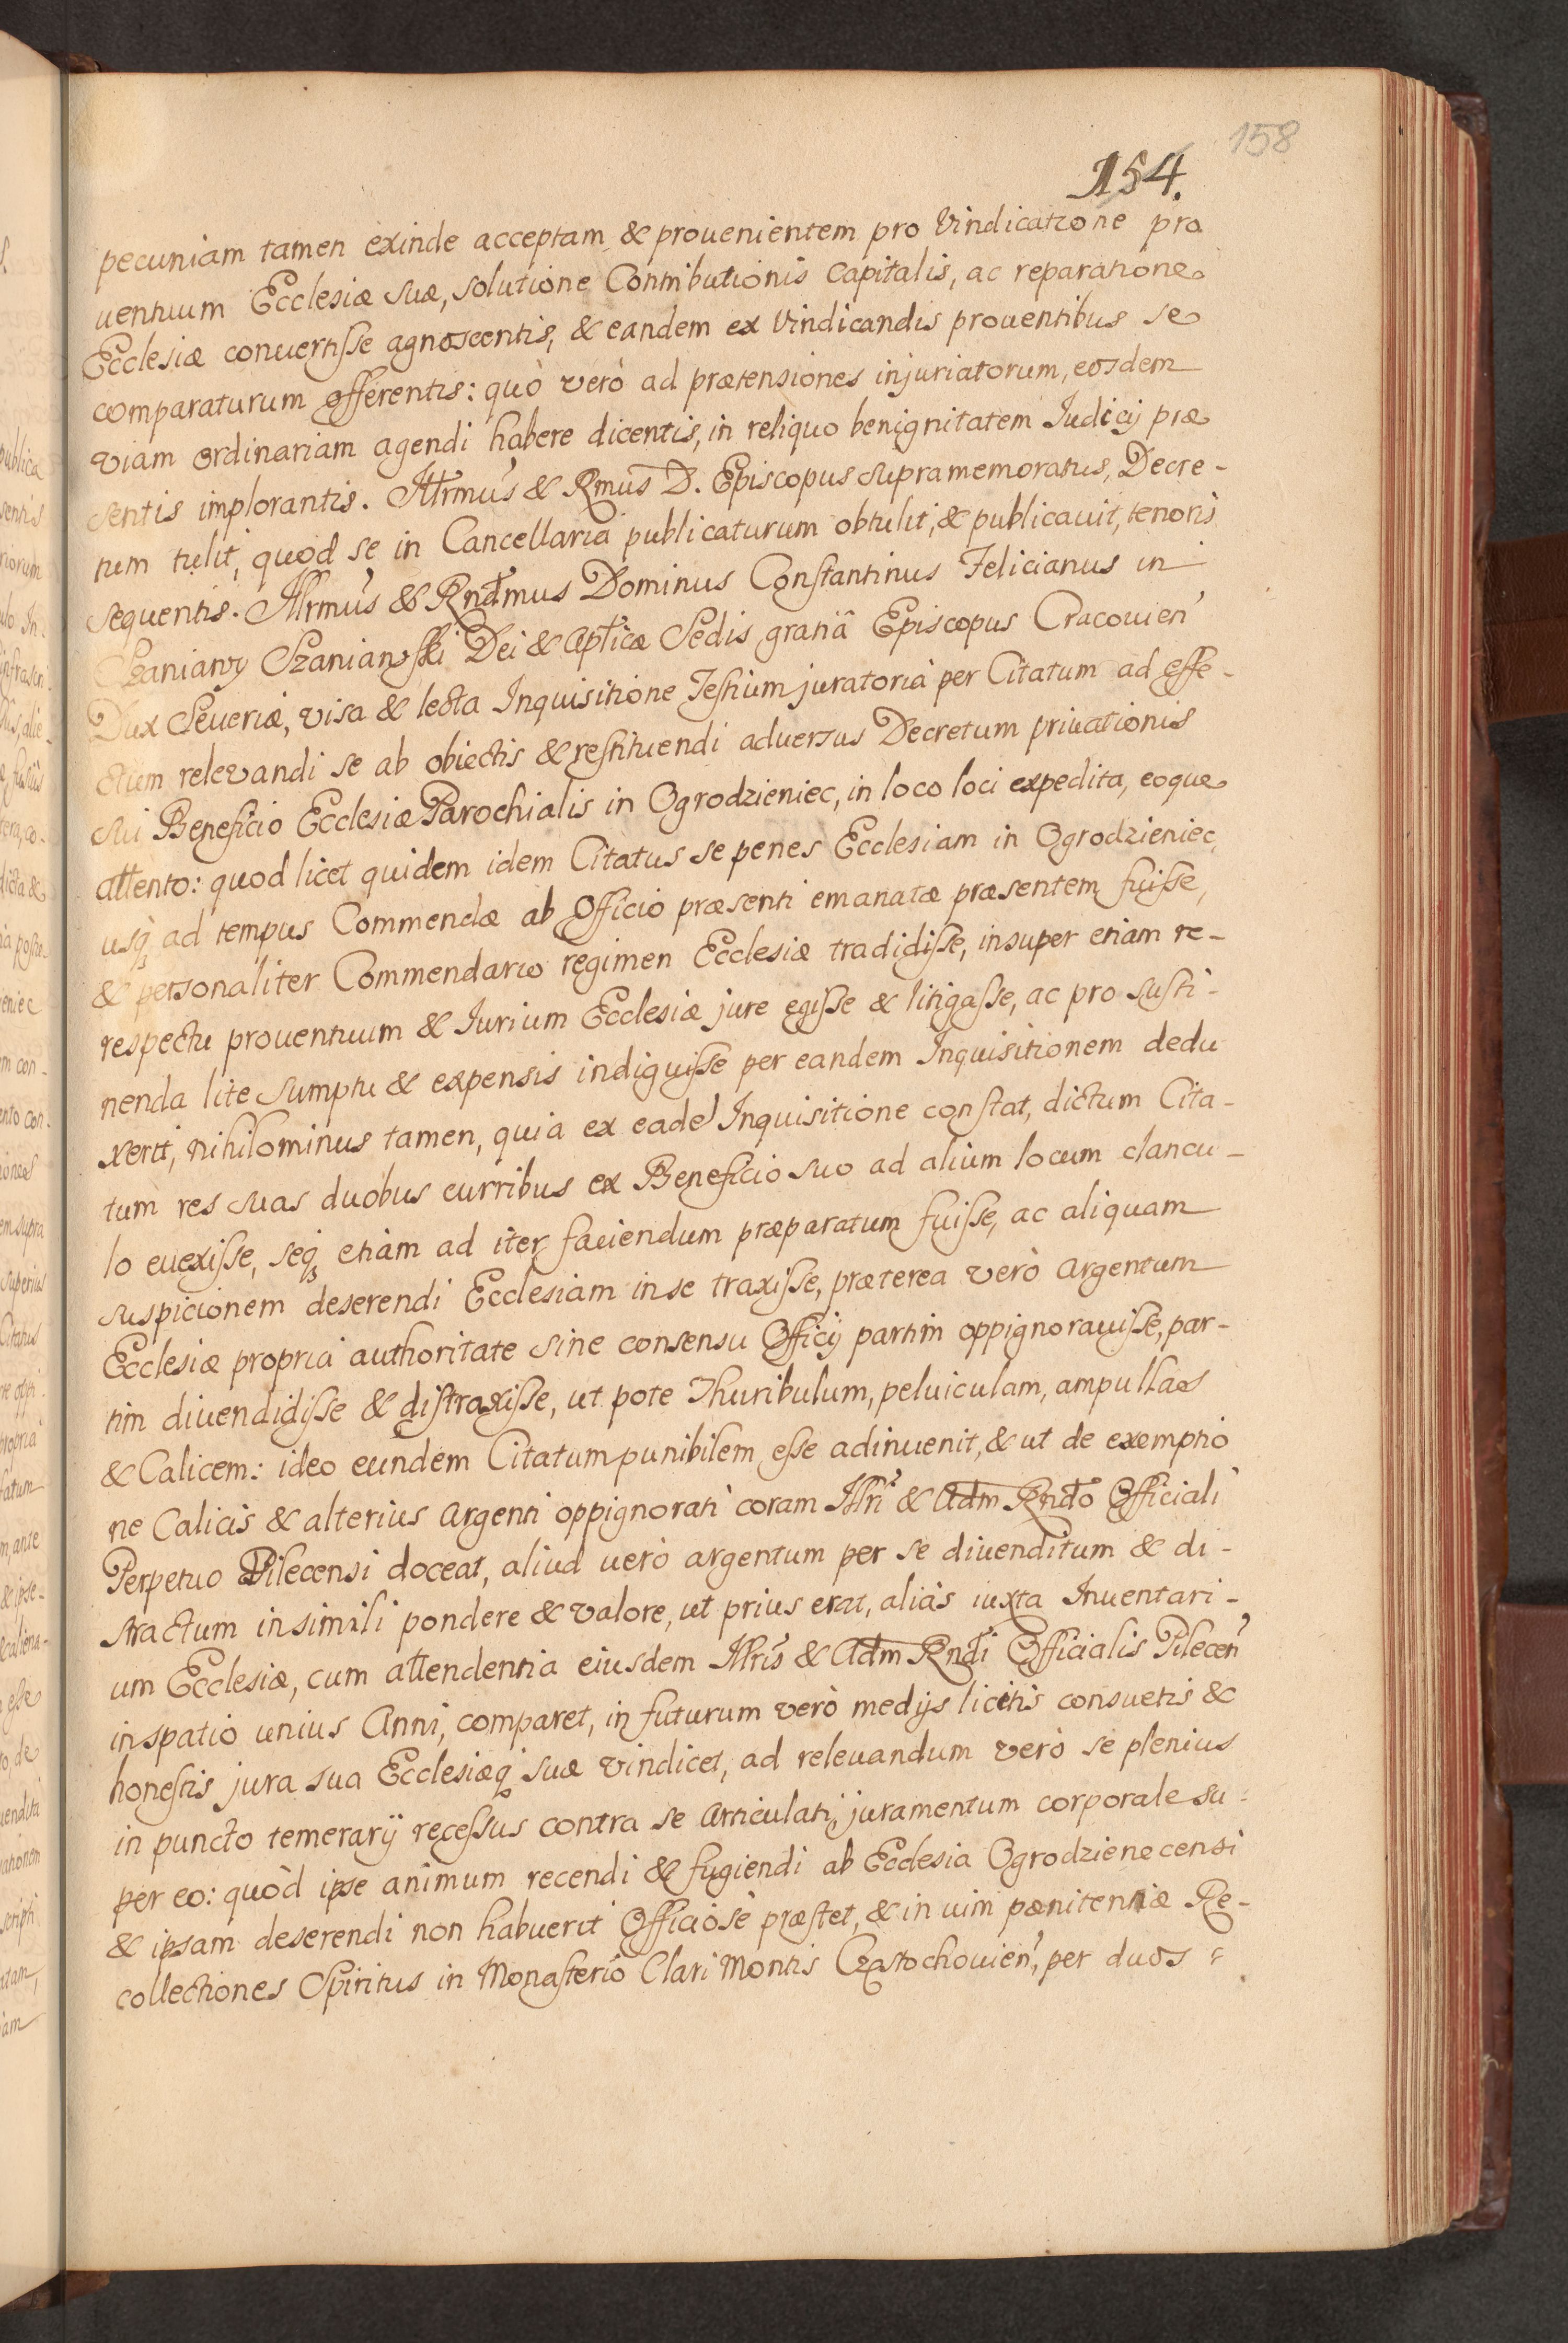 158
154.
pecuniam tamen exinde acceptam & prouenientem pro Vindicatione pro
uentuum Ecclesiæ suæ, solutione Contributionis Capitalis, ac reparatione
Ecclesiæ conuertisse agnoscentis, & eandem ex Vindicandis prouentibus se
comparaturum offerentis: quò verò ad prætensiones injuriatorum, eosdem
viam ordinariam agendi habere dicentis, in reliquo benignitatem Iudicij præ
sentis implorantis. Illrmus & Rmus D. Episcopus supramemoratus, Decre-
tum tulit, quod se in Cancellaria publicaturum obtulit, & publicauit, tenoris
sequentis. Illrmus & Rndmus Dominus Constantinus Felicianus in
Szaniawy Szaniawski Dei & Aplicæ Sedis gratiâ Episcopus Cracouien
Dux Seueriæ, visa & lecta Inquisitione Testium juratoria per Citatum ad effe-
ctum releuandi se ab obiectis & restituendi aduersus Decretum priuationis
sui Beneficio Ecclesiæ Parochialis in Ogrodzieniec, in loco loci expedita, eoque
attento: quod licet quidem idem Citatus se penes Ecclesiam in Ogrodzieniec,
usq3 ad tempus Commendæ ab Officio præsenti emanatæ præsentem fuisse,
& personaliter Commendario regimen Ecclesiæ tradidisse, insuper etiam re-
respectu prouentuum & Iurium Ecclesiæ jure egisse & litigasse, ac pro susti-
nenda lite sumptu & expensis indiguisse per eandem Inquisitionem dedu
xerit, nihilominus tamen, quia ex eade Inquisitione constat, dictum Cita-
tum res suas duobus curribus ex Beneficio suo ad alium locum clancu-
lo euexisse, seq3 etiam ad iter faciendum præparatum fuisse, ac aliquam
suspicionem deserendi Ecclesiam in se traxisse, præterea verò argentum
Ecclesiæ propria authoritate sine consensu Officij partim oppignorauisse, par-
tim diuendidisse & distraxisse, ut pote Thuribulum, peluiculam, ampullas
& Calicem: ideo eundem Citatum punibilem esse adinuenit, & ut de exemptio
ne Calicis & alterius argenti oppignorati coram Illri & Adm Rndo Officiali
Perpetuo Pilecensi doceat, aliud uerò argentum per se diuenditum & di-
stractum in simili pondere & valore, ut prius erat, aliàs iuxta Inuentari-
um Ecclesiæ, cum attendentia eiusdem Illris & Adm Rndi Officialis Pilecen
in spatio unius Anni, comparet, in futurum verò medijs licitis consuetis &
honestis jura sua Ecclesiæq3 suæ vindicet, ad releuandum verò se plenius
in puncto temerarij recessus contra se articulati, juramentum corporale su-
per eo: quòd ipse animum recendi & fugiendi ab Ecclesia Ogrodzienecensi
& ipsam deserendi non habuerit Officiosè præstet, & in uim pænitentiæ Re-
collectiones Spiritus in Monasterio Clari Montis Częstochouien, per duos